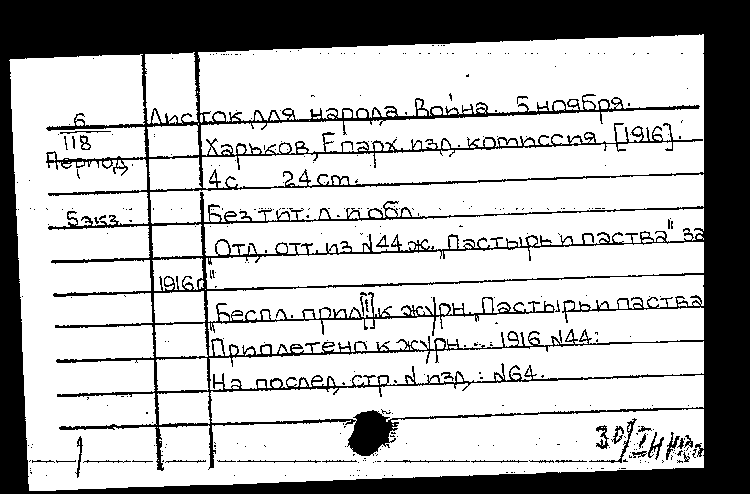 6
Листок для народа. Война. 5 ноября.
118
Период.
Харьков, Епарх. изд. комиссия, [1916].
4 с. 24 cm.
5 экз.
Без тит. л. и обл.
"Отд. отт. из №44 ж. „Пастырь и паства" за
1916 г."
"Беспл. прил[.] к журн. „Пастырь и паства
Приплетено к журн. ... 1916, №44.
На послед. стр. № изд.: №64.